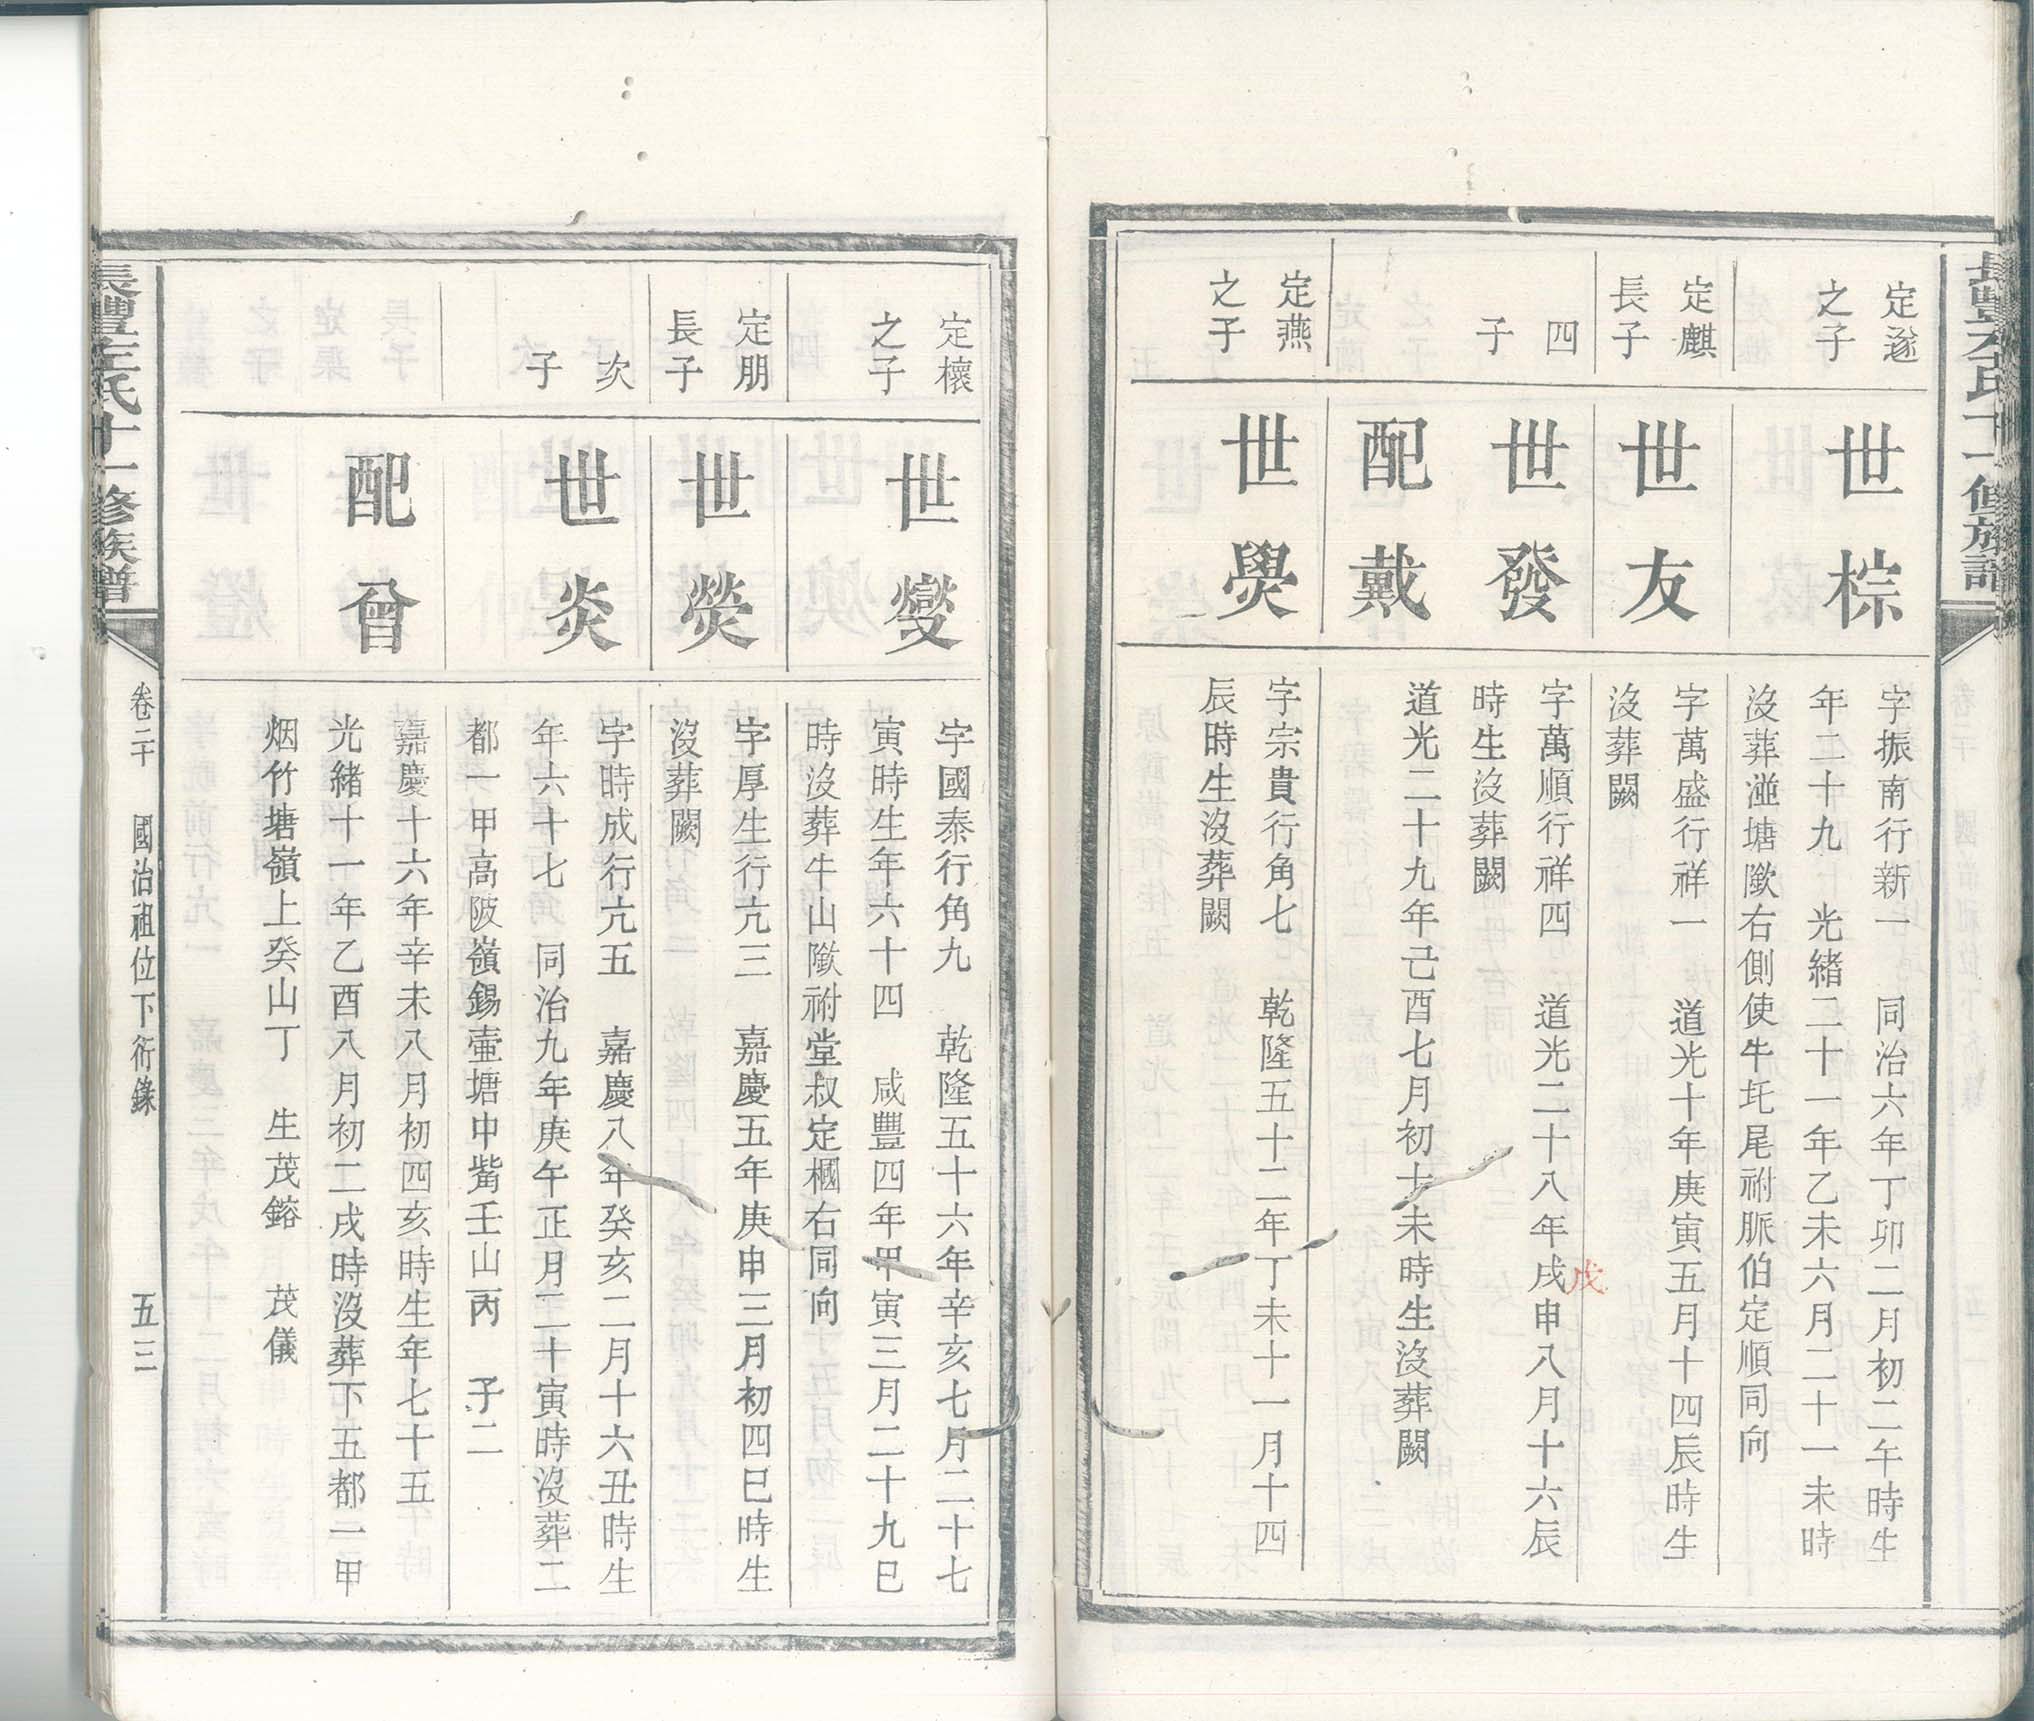 定遂
之子
世棕
字振南行新一　同治六年丁卯二月初二午時生
年二十九　光緒二十一年乙未六月二十一未時
沒葬湴塘歐右側使牛𡉏尾祔脈伯定順同向
定麒
長子
世友
字萬盛行祥一　道光十年庚寅五月十四辰時生
沒葬闕
四
子
世發
字萬順行祥四　道光二十八年戌申八月十六辰
戊
時生沒葬闕
配戴
道光二十九年己酉七月初十未時生沒葬闕
定燕
之子
世爂
字宗貴行角七　乾隆五十二年丁未十一月十四
辰時生沒葬闕
定櫰
之子
世燮
字國泰行角九　乾隆五十六年辛亥七月二十七
寅時生年六十四　咸豐四年甲寅三月二十九巳
時沒葬牛山歐祔堂叔定槶右同向
定朋
長子
世熒
字厚生行亢三　嘉慶五年庚申三月初四巳時生
沒葬闕
次
子
世炎
字時成行亢五　嘉慶八年癸亥二月十六丑時生
年六十七　同治九年庚午正月二十寅時沒葬二
都一甲高陂嶺錫壺塘中觜壬山丙　子二
配曾
嘉慶十六年辛未八月初四亥時生年七十五
光緒十一年乙酉八月初二戌時沒葬下五都一甲
烟竹塘嶺上癸山丁　生茂鎔　茂儀
長豐左氏十一修族譜
卷二十　國治祖位下衍錄　五三